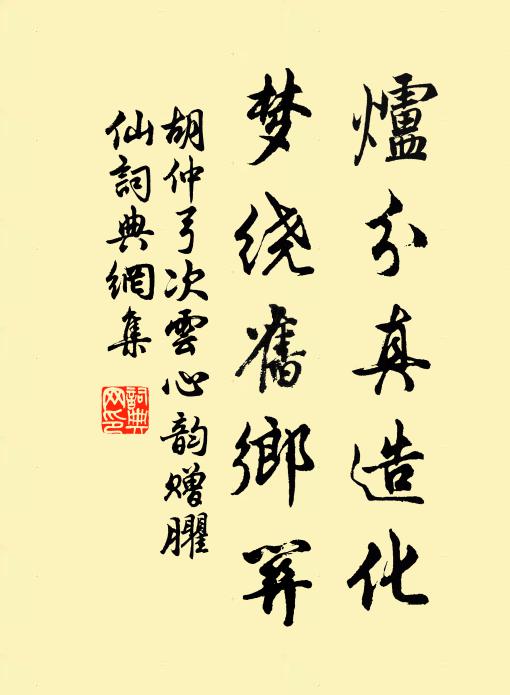 爐分真造化
梦绕舊鄉関
胡仲弓次雲心韵赠臞
仙詞典網集
詞典
网印